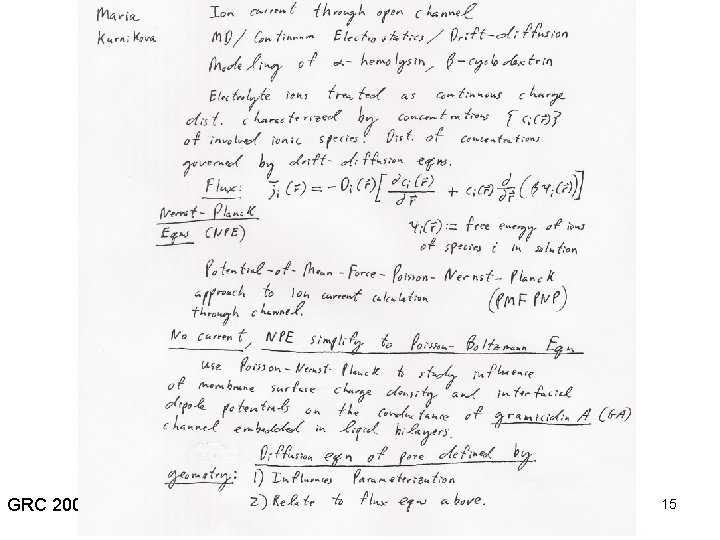 Maria Ion current through open channel
Kurnikova MD/Continuum Electrostatics/Drift-diffusion
Modeling of α-hemolysin, β-cyclodextrin
Electrolyte ions treated as continuous charge
dist. characterized by concentrations {ci(r⃗)}
of involved ionic species. Dist. of concentrations
governed by drift-diffusion eqns.
Flux: j⃗i(r⃗) = -Di(r⃗)[dci(r⃗)/dr⃗ + ci(r⃗) d/dr⃗ (βψi(r⃗))]
Nernst-Planck
Eqns (NPE) ψi(r⃗) := free energy of ions
of species i in solution
Potential-of-Mean-Force-Poisson-Nernst-Planck
approach to ion current calculation (PMF PNP)
through channel.
No current, NPE simplify to Poisson-Boltzmann Eqn
use Poisson-Nernst-Planck to study influence
of membrane surface charge density and interfacial
dipole potentials on the conductance of gramicidin A (GA)
channel embedded in lipid bilayers.
Diffusion eqn of pore defined by
geometry: 1) Influences Parameterization
2) Relate to flux eqns above.
GRC 200 15